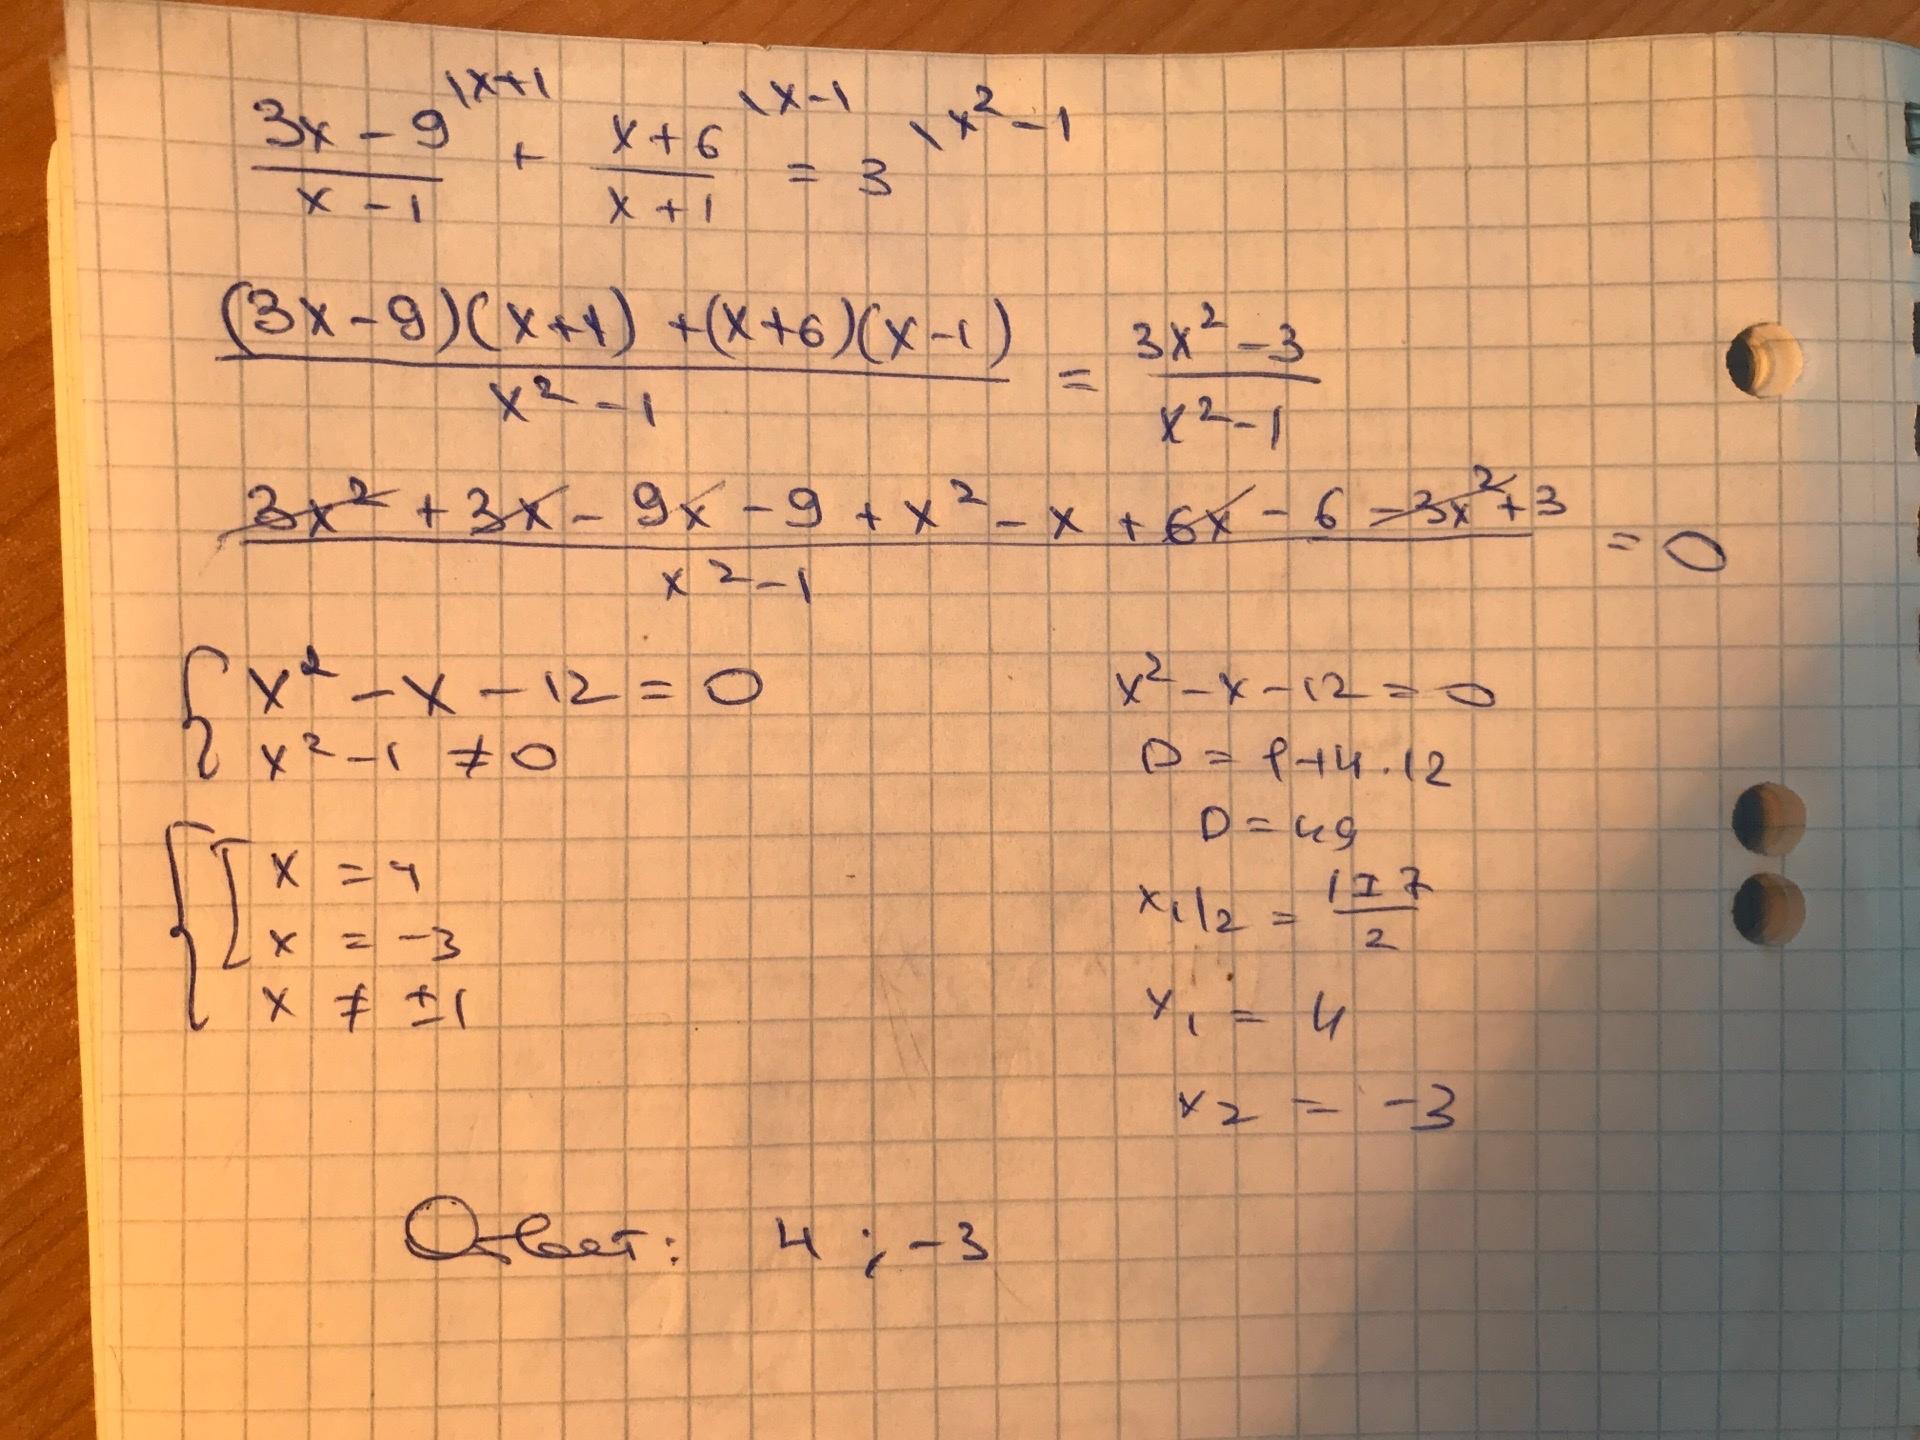 3x - 9 \x+1 / x - 1 + x + 6 \x-1 / x + 1 = 3 \x² - 1
(3x - 9)(x + 1) + (x + 6)(x - 1) / x² - 1 = 3x² - 3 / x² - 1
3x² + 3x - 9x - 9 + x² - x + 6x - 6 - 3x² + 3 / x² - 1 = 0
{ x² - x - 12 = 0
x² - 1 ≠ 0
{ [ x = 4
x = -3
x ≠ ±1
x² - x - 12 = 0
D = 1 + 4 · 12
D = 49
x₁/₂ = 1 ± 7 / 2
x₁ = 4
x₂ = -3
Ответ: 4 ; -3